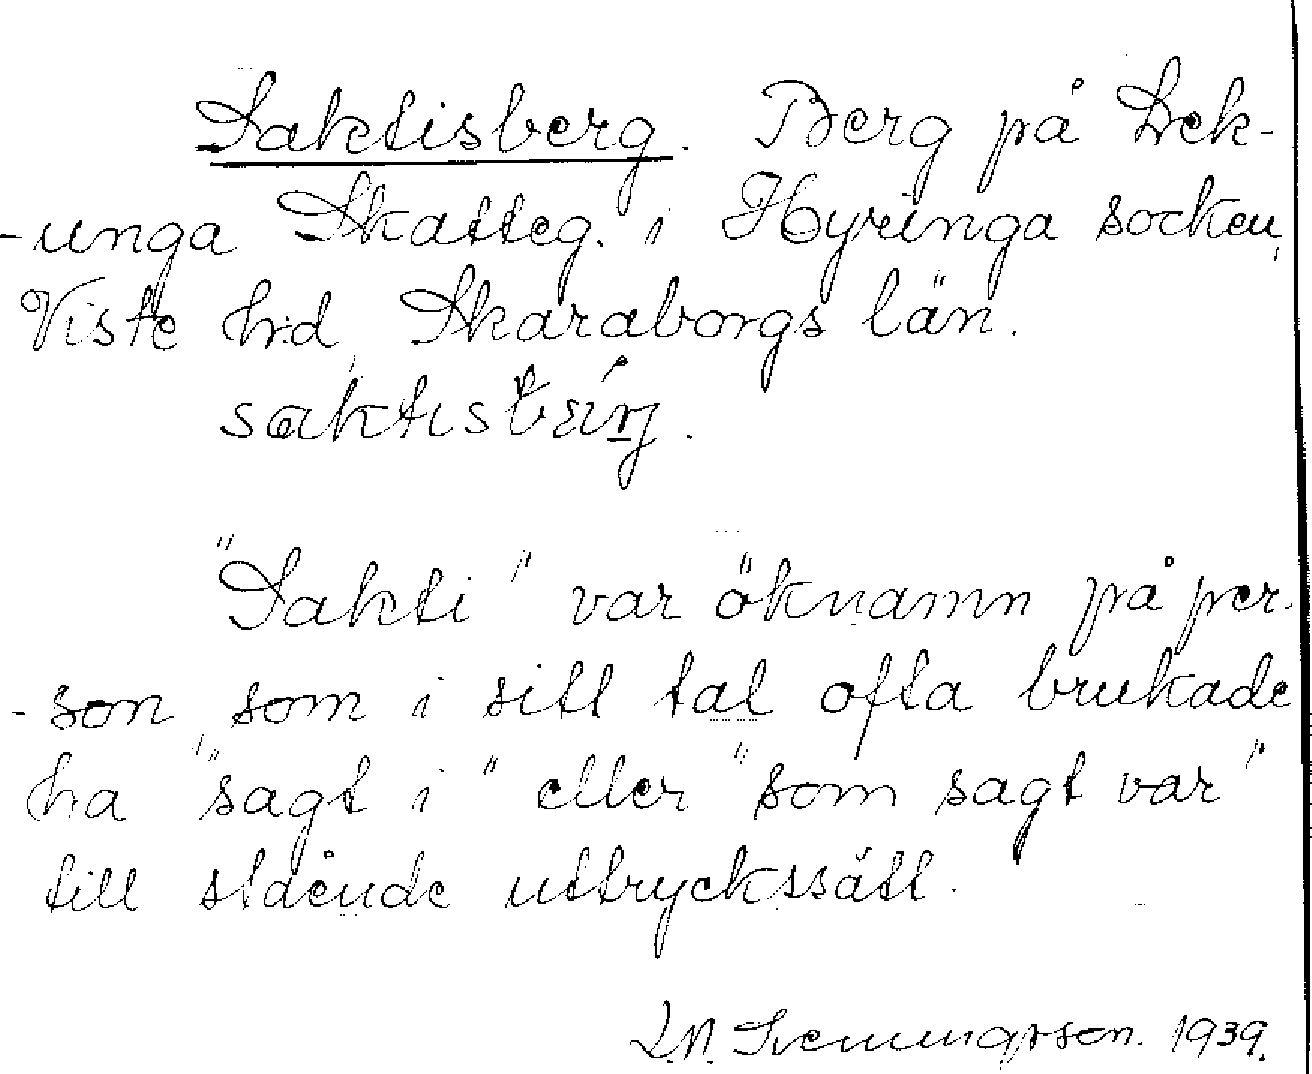 Saktisberg. Berg på Lek-
-unga Skatteg. i Hyringa socken,
Viste hrd, Skaraborgs län.
"Sakti" var öknamn på per-
-son, som i sitt tal ofta brukade
ha "sagt i" eller "som sagt var"
till stående uttryckssätt.
1939.